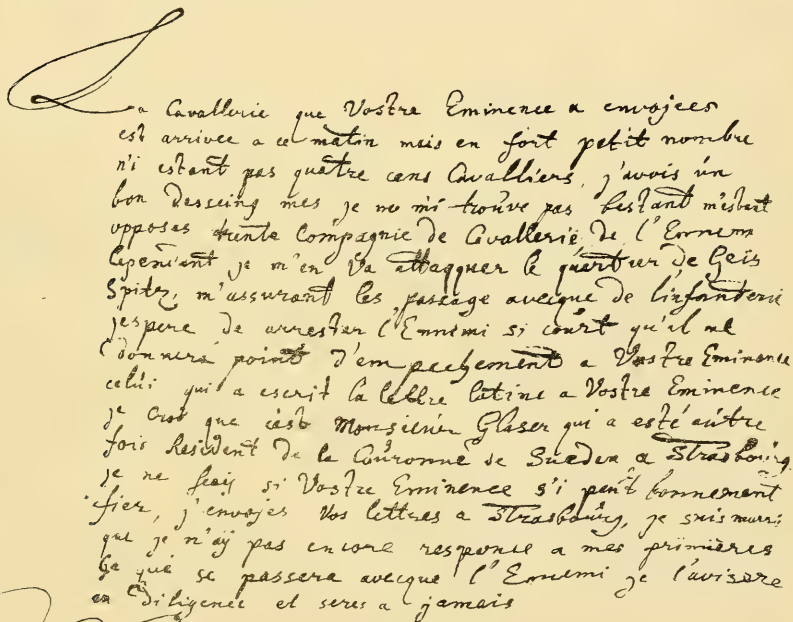 La Cavallerie que Vostre Eminence a envojees
est arrivee a ce matin mais en fort petit nombre
n'i estant pas quattre cens Cavalliers, j'avois ûn
bon desseing mes je ne mi trouve pas bastant m'estant
opposes trente Compagnie de Cavallerie de l'Ennemi
Cepeñdent je m'en Va attacquer le quartier de Geis
Spitz, m'assurant les passage avecque de l'infanterie
jespere de arrester l'Ennemi si court qu'il ne
donnera point d'empechement a Vostre Eminence
celui qui a escrit la lettre latine a Vostre Eminence
je croi que cest Monsieur Glaser qui a esté autre
fois Resident de la Couronne de Sueden a Strasbourg,
je ne sçai si Vostre Eminence s'i peut bonnement
fier, j'envojes Vos lettres a Strasbourg, je suis marri
que je n'aÿ pas encore response a mes primieres
Ça que se passera avecque l'Ennemi je l'avisere
en Diligence et seres a jamais